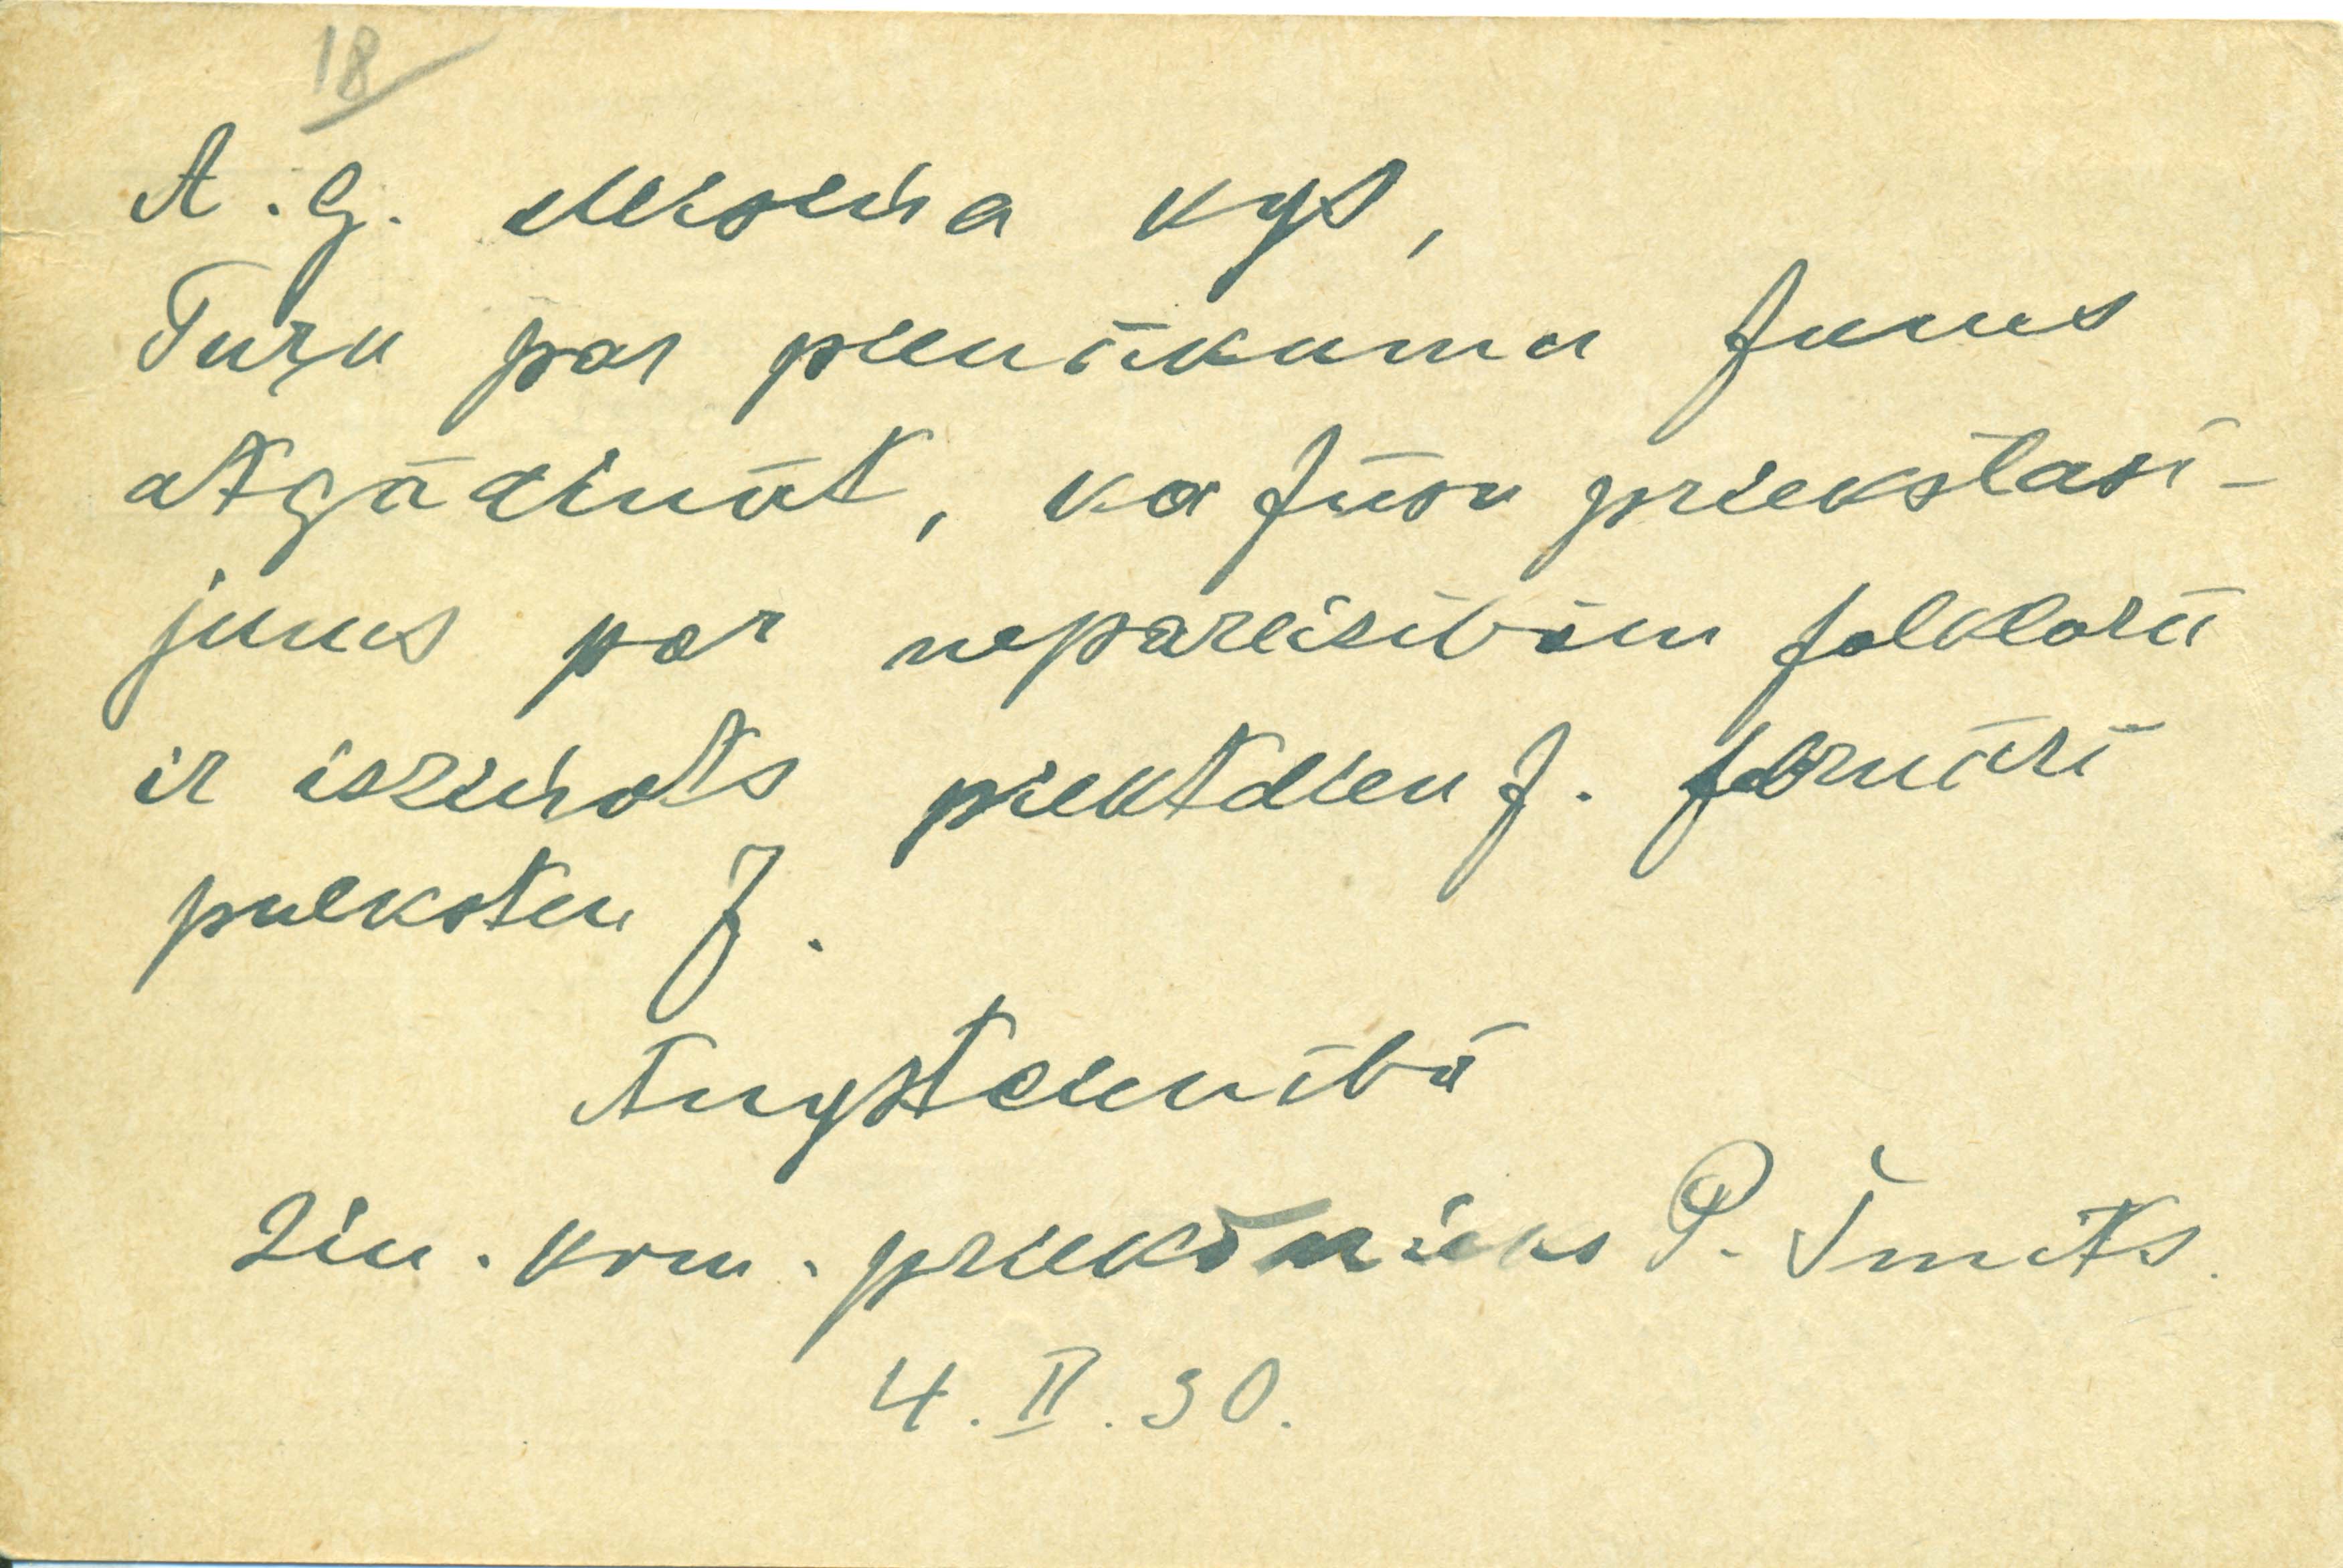 18
A. g. Misiņa kgs,
Turu par pienākumu Jums
atgādināt, ka Jūsu priekšlasī-
jums par nepareizībām folklorā
ir izziņots piektdien 7. februārī
pulksten 7.
Augstcienībā
Zin. kom. priekšnieks P. Šmits.
4. II. 30.